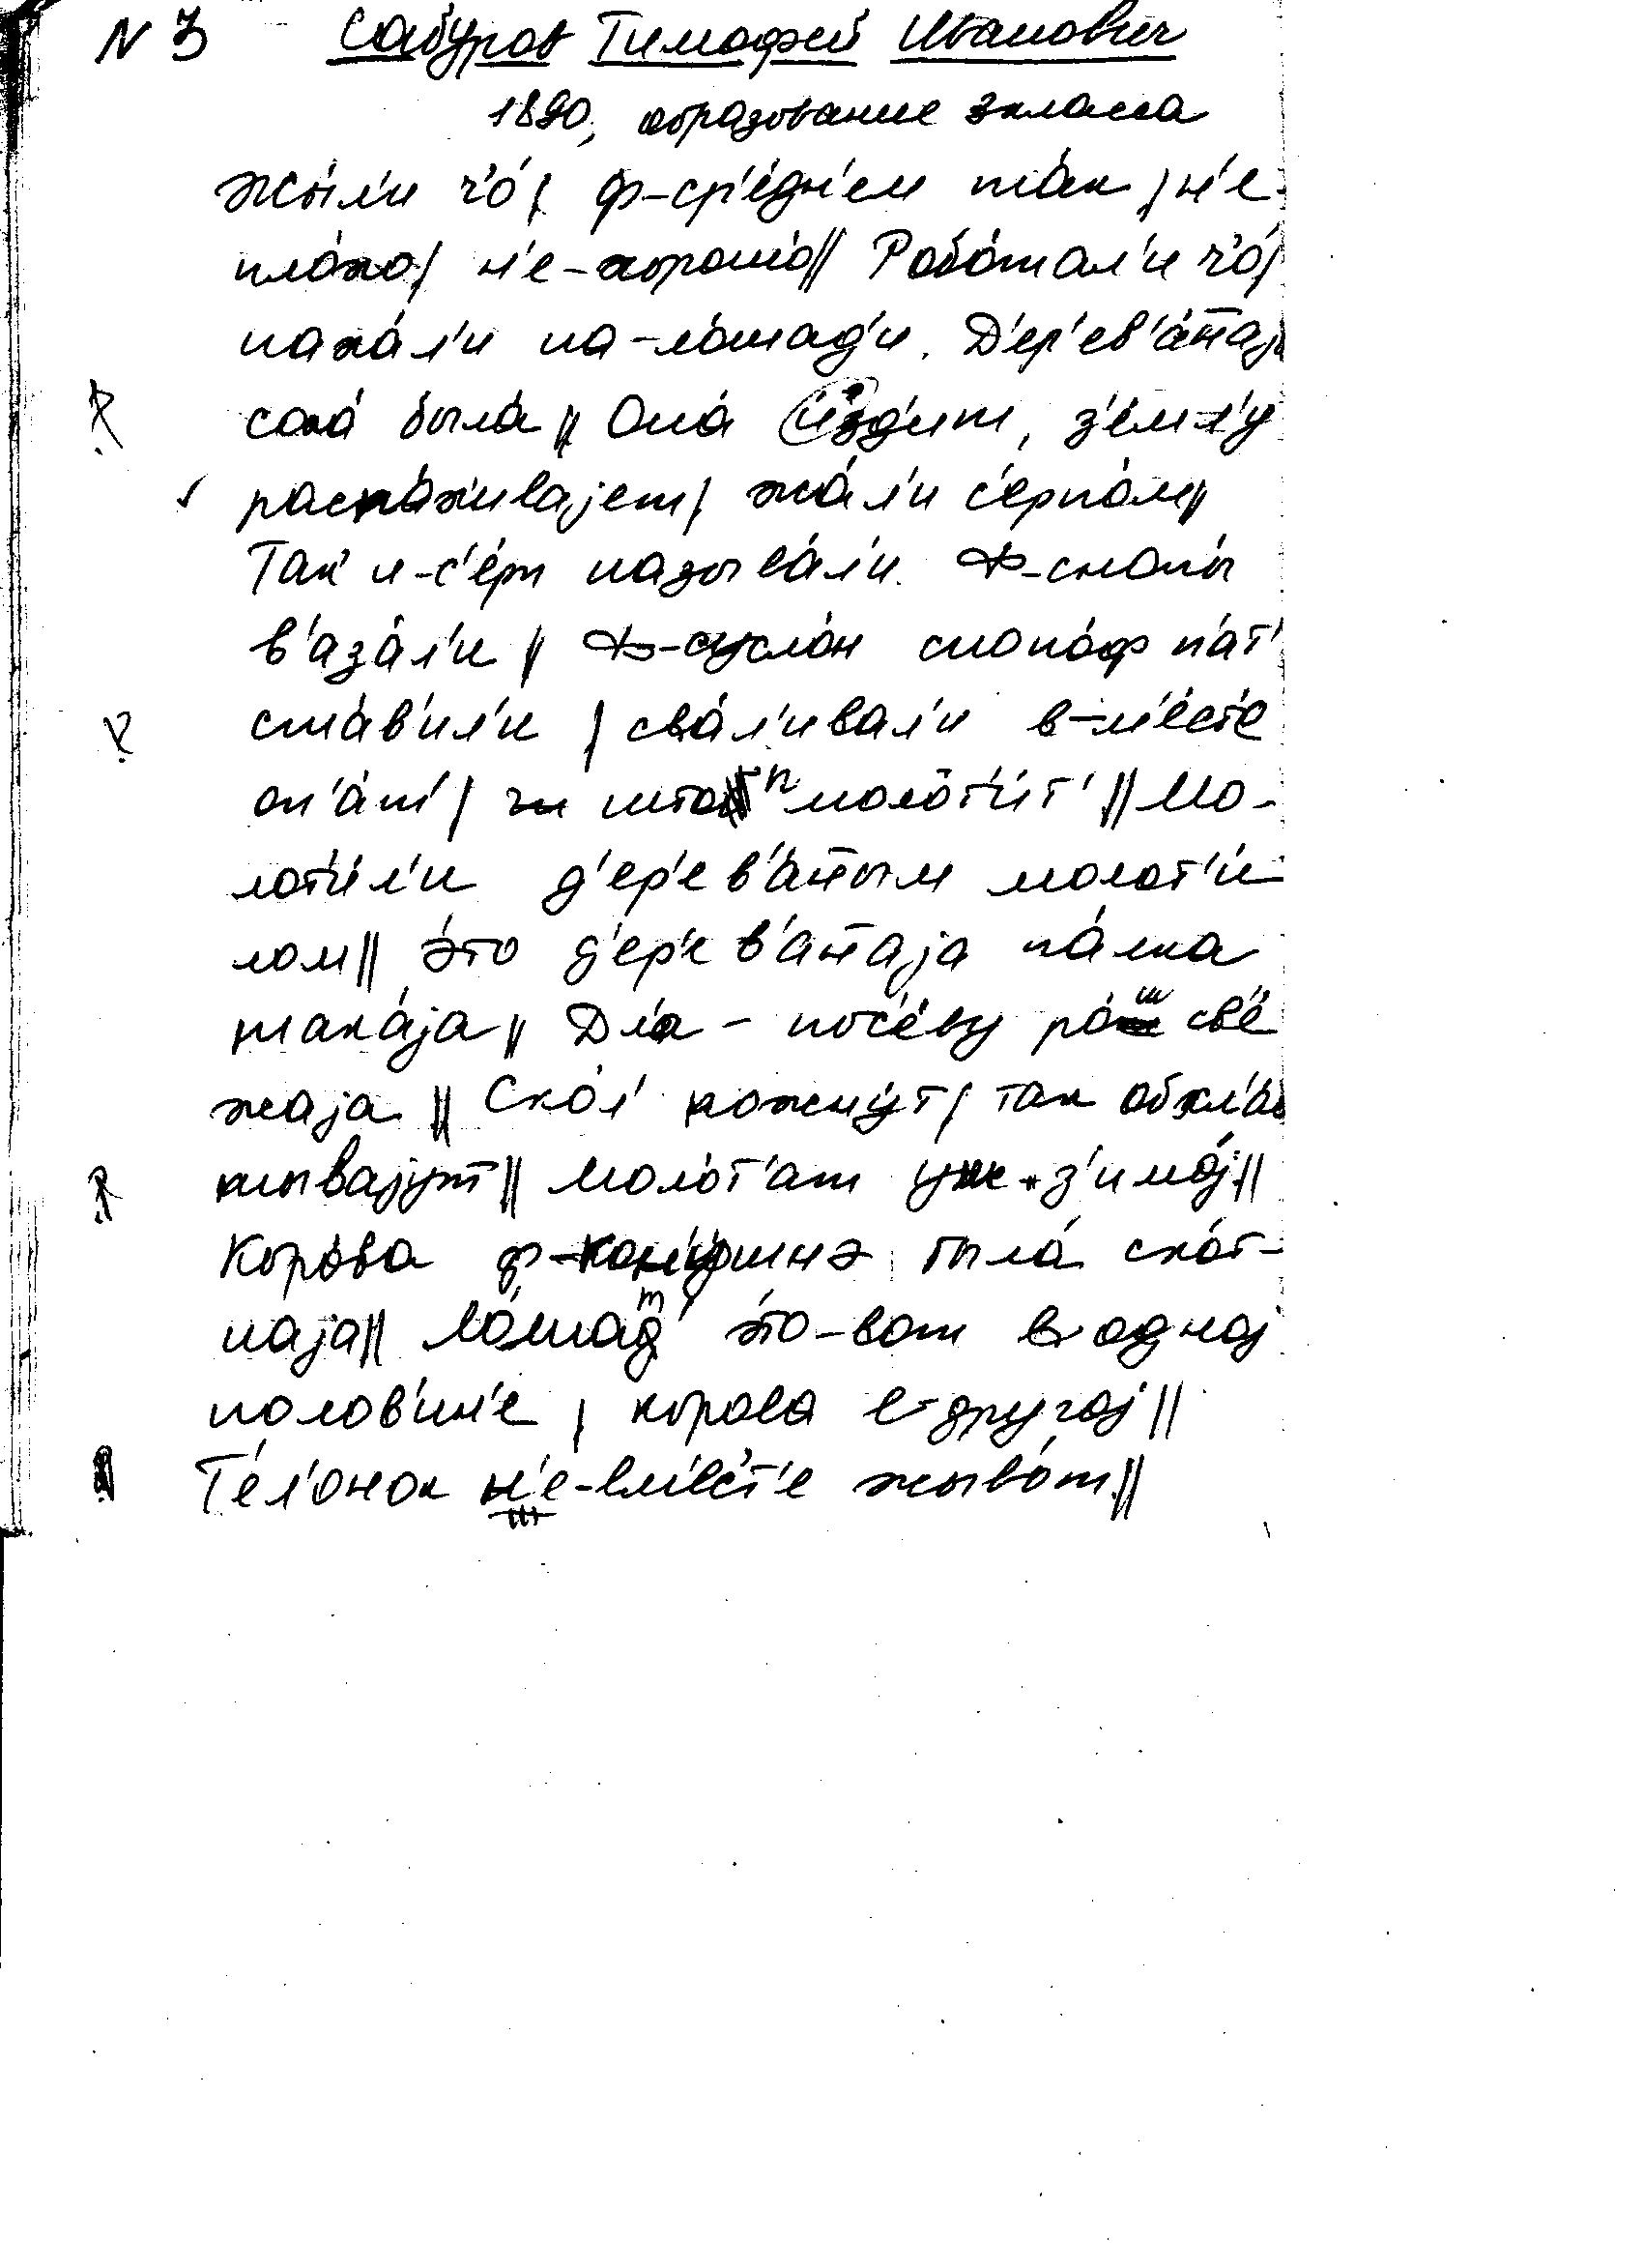 N 3 Сабуров Тимофей Иванович
1890, образование 3 класса
жы́л'и ч'о́ | ф-ср'е́дн'ем та́к | н'е-
пло́хо | н'е-хорошо́ || Робо́тал'и ч'о́ |
паха́л'и на-ло́шад'и. Д'ер'ев'а́наjа
соха́ была́ || Она́ и́зд'ит, з'е́мл'у
распа́хиваjет | жа́л'и с'ерпо́м ||
Так и-с'е́рп называ́л'и. Ф-снопы́
в'аза́л'и || Ф-сусло́н снопо́ф п'а́т'
ста́в'ил'и | сва́л'ивал'и в-м'е́ст'е
оп'а́т' | штоп молот'и́т' || Мо-
лот'и́л'и д'ер'ев'а́ным молот'и́-
лом || э́то д'ер'ев'а́наjа па́лка
така́jа || Дл'а-пос'е́ву ро́ш св'е́
жаjа || Ско́л' пожну́т | так обкла́
мывajут || Моло́т'ат уж-з'имо́j ||
Коро́ва ф-кон'у́шнэ была́ ско́т-
наjа || Ло́шат' э́то-вот в одноj
полов'ин'е | корова в-другоj ||
Т'ел'онок н'е-вм'е́ст'е жыво́т ||